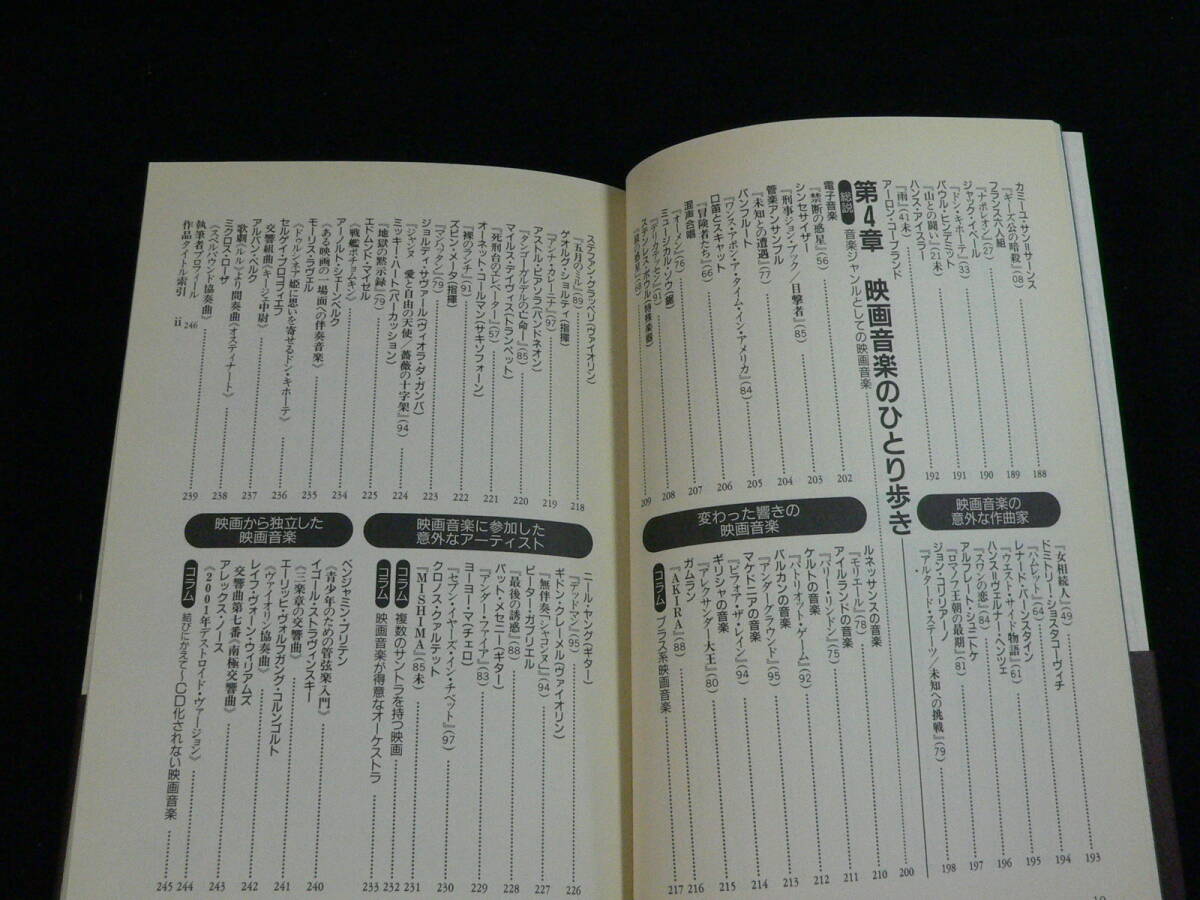 カミーユ・サン=サーンス
『ギーズ公の暗殺』(08) 188
フランス六人組
『ナポレオン』(27) 189
ジャック・イベール
『ドン・キホーテ』(33) 190
パウル・ヒンデミット
『山との闘い』(21未) 191
ハンス・アイスラー
『雨』(41未) 192
アーロン・コープランド
映画音楽の
意外な作曲家
『女相続人』(49) 193
ドミトリー・ショスタコーヴィチ
『ハムレット』(64) 194
レナード・バーンスタイン
『ウエスト・サイド物語』(61) 195
ハンス=ヴェルナー・ヘンツェ
『スワンの恋』(84) 196
アルフレート・シュニトケ
『ロマノフ王朝の最期』(81) 197
ジョン・コリリアーノ
『アルタード・ステーツ/未知への挑戦』(79) 198
第4章 映画音楽のひとり歩き
総説 音楽ジャンルとしての映画音楽 200
電子音楽
『禁断の惑星』(56) 202
シンセサイザー
『刑事ジョン・ブック/目撃者』(85) 203
管楽アンサンブル
『未知との遭遇』(77) 204
パンフルート
『ワンス・アポン・ア・タイム・イン・アメリカ』(84) 205
口笛とスキャット
『冒険者たち』(66) 206
混声合唱
『オーメン』(76) 207
ミュージカル・ソウ(鋸)
『デリカテッセン』(91) 208
ステンレス・ボウル(特殊楽器)
『猿の惑星』(68) 209
変わった響きの
映画音楽
ルネッサンスの音楽
『モリエール』(78) 210
アイルランドの音楽
『バリー・リンドン』(75) 211
ケルトの音楽
『パトリオット・ゲーム』(92) 212
バルカンの音楽
『アンダーグラウンド』(95) 213
マケドニアの音楽
『ビフォア・ザ・レイン』(94) 214
ギリシャの音楽
『アレクサンダー大王』(80) 215
ガムラン
『AKIRA』(88) 216
コラム ブラス系映画音楽 217
ステファン・グラッペリ(ヴァイオリン)
『五月のミル』(89) 218
ゲオルク・ショルティ(指揮)
『アンナ・カレーニナ』(97) 219
アストル・ピアソラ(バンドネオン)
『タンゴ―ガルデルの亡命―』(85) 220
マイルス・デイヴィス(トランペット)
『死刑台のエレベーター』(57) 221
オーネット・コールマン(サキソフォーン)
『裸のランチ』(91) 222
ズビン・メータ(指揮)
『マンハッタン』(79) 223
ジョルディ・サヴァール(ヴィオラ・ダ・ガンバ)
『ジャンヌ 愛と自由の天使/薔薇の十字架』(94) 224
ミッキー・ハート(パーカッション)
『地獄の黙示録』(79) 225
映画音楽に参加した
意外なアーティスト
ニール・ヤング(ギター)
『デッドマン』(95) 226
ギドン・クレーメル(ヴァイオリン)
『無伴奏「シャコンヌ」』(94) 227
ピーター・ガブリエル
『最後の誘惑』(88) 228
パット・メセニー(ギター)
『アンダー・ファイア』(83) 229
ヨーヨー・マ(チェロ)
『セブン・イヤーズ・イン・チベット』(97) 230
クロノス・クァルテット
『MISHIMA』(85未) 231
コラム 複数のサントラを持つ映画 232
コラム 映画音楽が得意なオーケストラ 233
エドムンド・マイゼル
《戦艦ポチョムキン》 234
アーノルト・シェーンベルク
《ある映画の一場面への伴奏音楽》 235
モーリス・ラヴェル
《ドゥルシネア姫に思いを寄せるドン・キホーテ》 236
セルゲイ・プロコフィエフ
交響組曲《キージェ中尉》 237
アルバン・ベルク
歌劇《ルル》より間奏曲《オスティナート》 238
ミクロス・ローザ
《スペルバウンド協奏曲》 239
執筆者プロフィール 246
作品タイトル索引 ii
映画から独立した
映画音楽
ベンジャミン・ブリテン
《青少年のための管弦楽入門》 240
イゴール・ストラヴィンスキー
《三楽章の交響曲》 241
エーリッヒ・ヴォルフガング・コルンゴルト
《ヴァイオリン協奏曲》 242
レイフ・ヴォーン・ウィリアムズ
交響曲第七番《南極交響曲》 243
アレックス・ノース
《2001年デストロイド・ヴァージョン》 244
コラム 結びにかえて〜CD化されない映画音楽 245